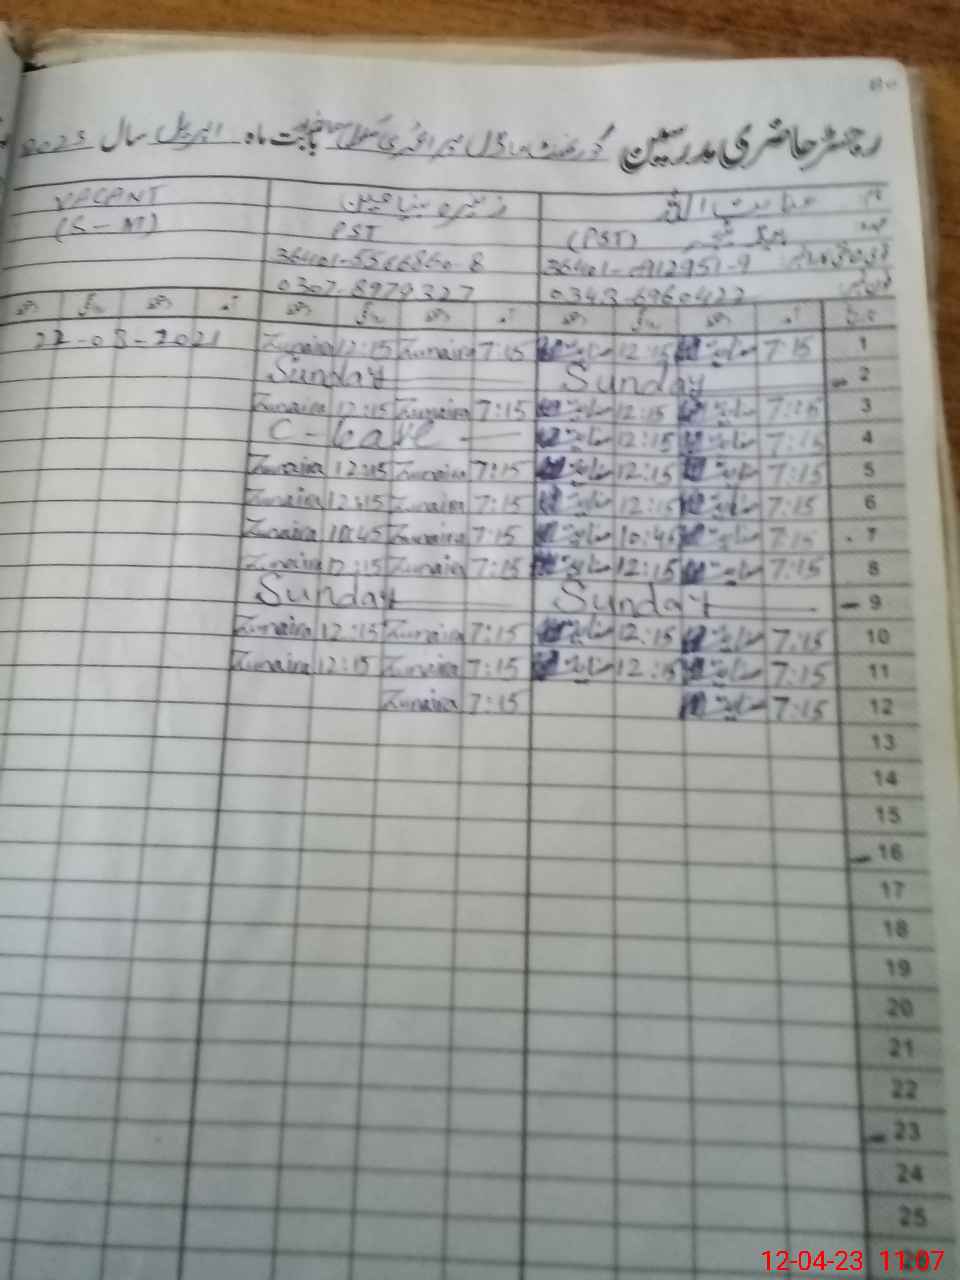 رجسٹر حاضری مدرسین گورنمنٹ ماڈل پرائمری سکول بابت ماہ اپریل سال 2023
نام عنایت اللہ VACANT
عہدہ ہیڈ ٹیچر (PST) PST (S-M)
0307-8979327
آمد دستخط روانگی دستخط آمد دستخط روانگی دستخط آمد دستخط روانگی دستخط
1 7:15 عنایت 12:15 عنایت 7:15 Zunaira 12:15 Zunaira 22-03-2021
2 Sunday Sunday
3 7:15 عنایت 12:15 عنایت 7:15 Zunaira 12:15 Zunaira
4 7:15 عنایت 12:15 عنایت C-Leave
5 7:15 عنایت 12:15 عنایت 7:15 Zunaira 12:15 Zunaira
6 7:15 عنایت 12:15 عنایت 7:15 Zunaira 12:15 Zunaira
7 7:15 عنایت 10:45 عنایت 7:15 Zunaira 10:45 Zunaira
8 7:15 عنایت 12:15 عنایت 7:15 Zunaira 12:15 Zunaira
9 Sunday Sunday
10 7:15 عنایت 12:15 عنایت 7:15 Zunaira 12:15 Zunaira
11 7:15 عنایت 12:15 عنایت 7:15 Zunaira 12:15 Zunaira
12 7:15 عنایت 7:15 Zunaira
13
14
15
16
17
18
19
20
21
22
23
24
25
12-04-23 11:07